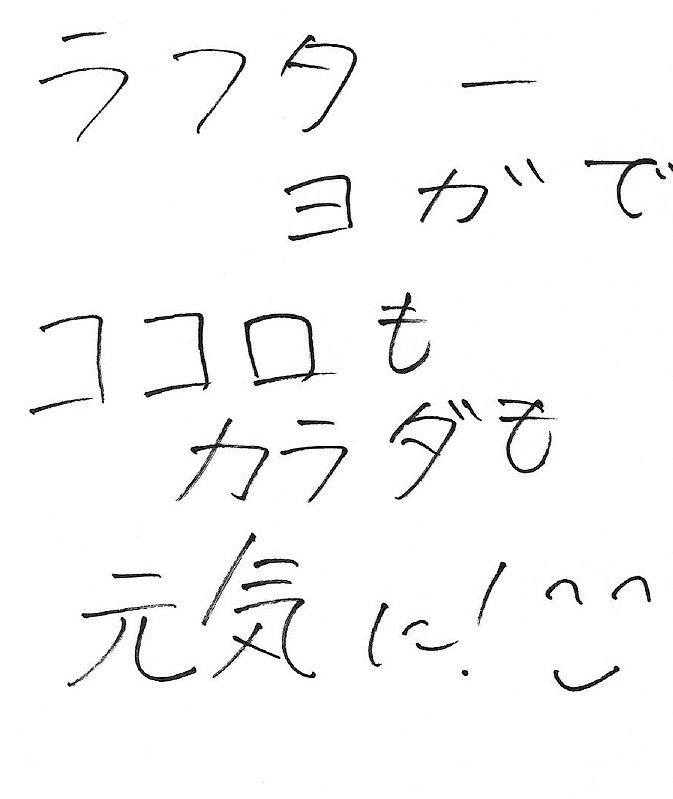 ラフター
ヨガで
ココロも
カラダも
元気に!